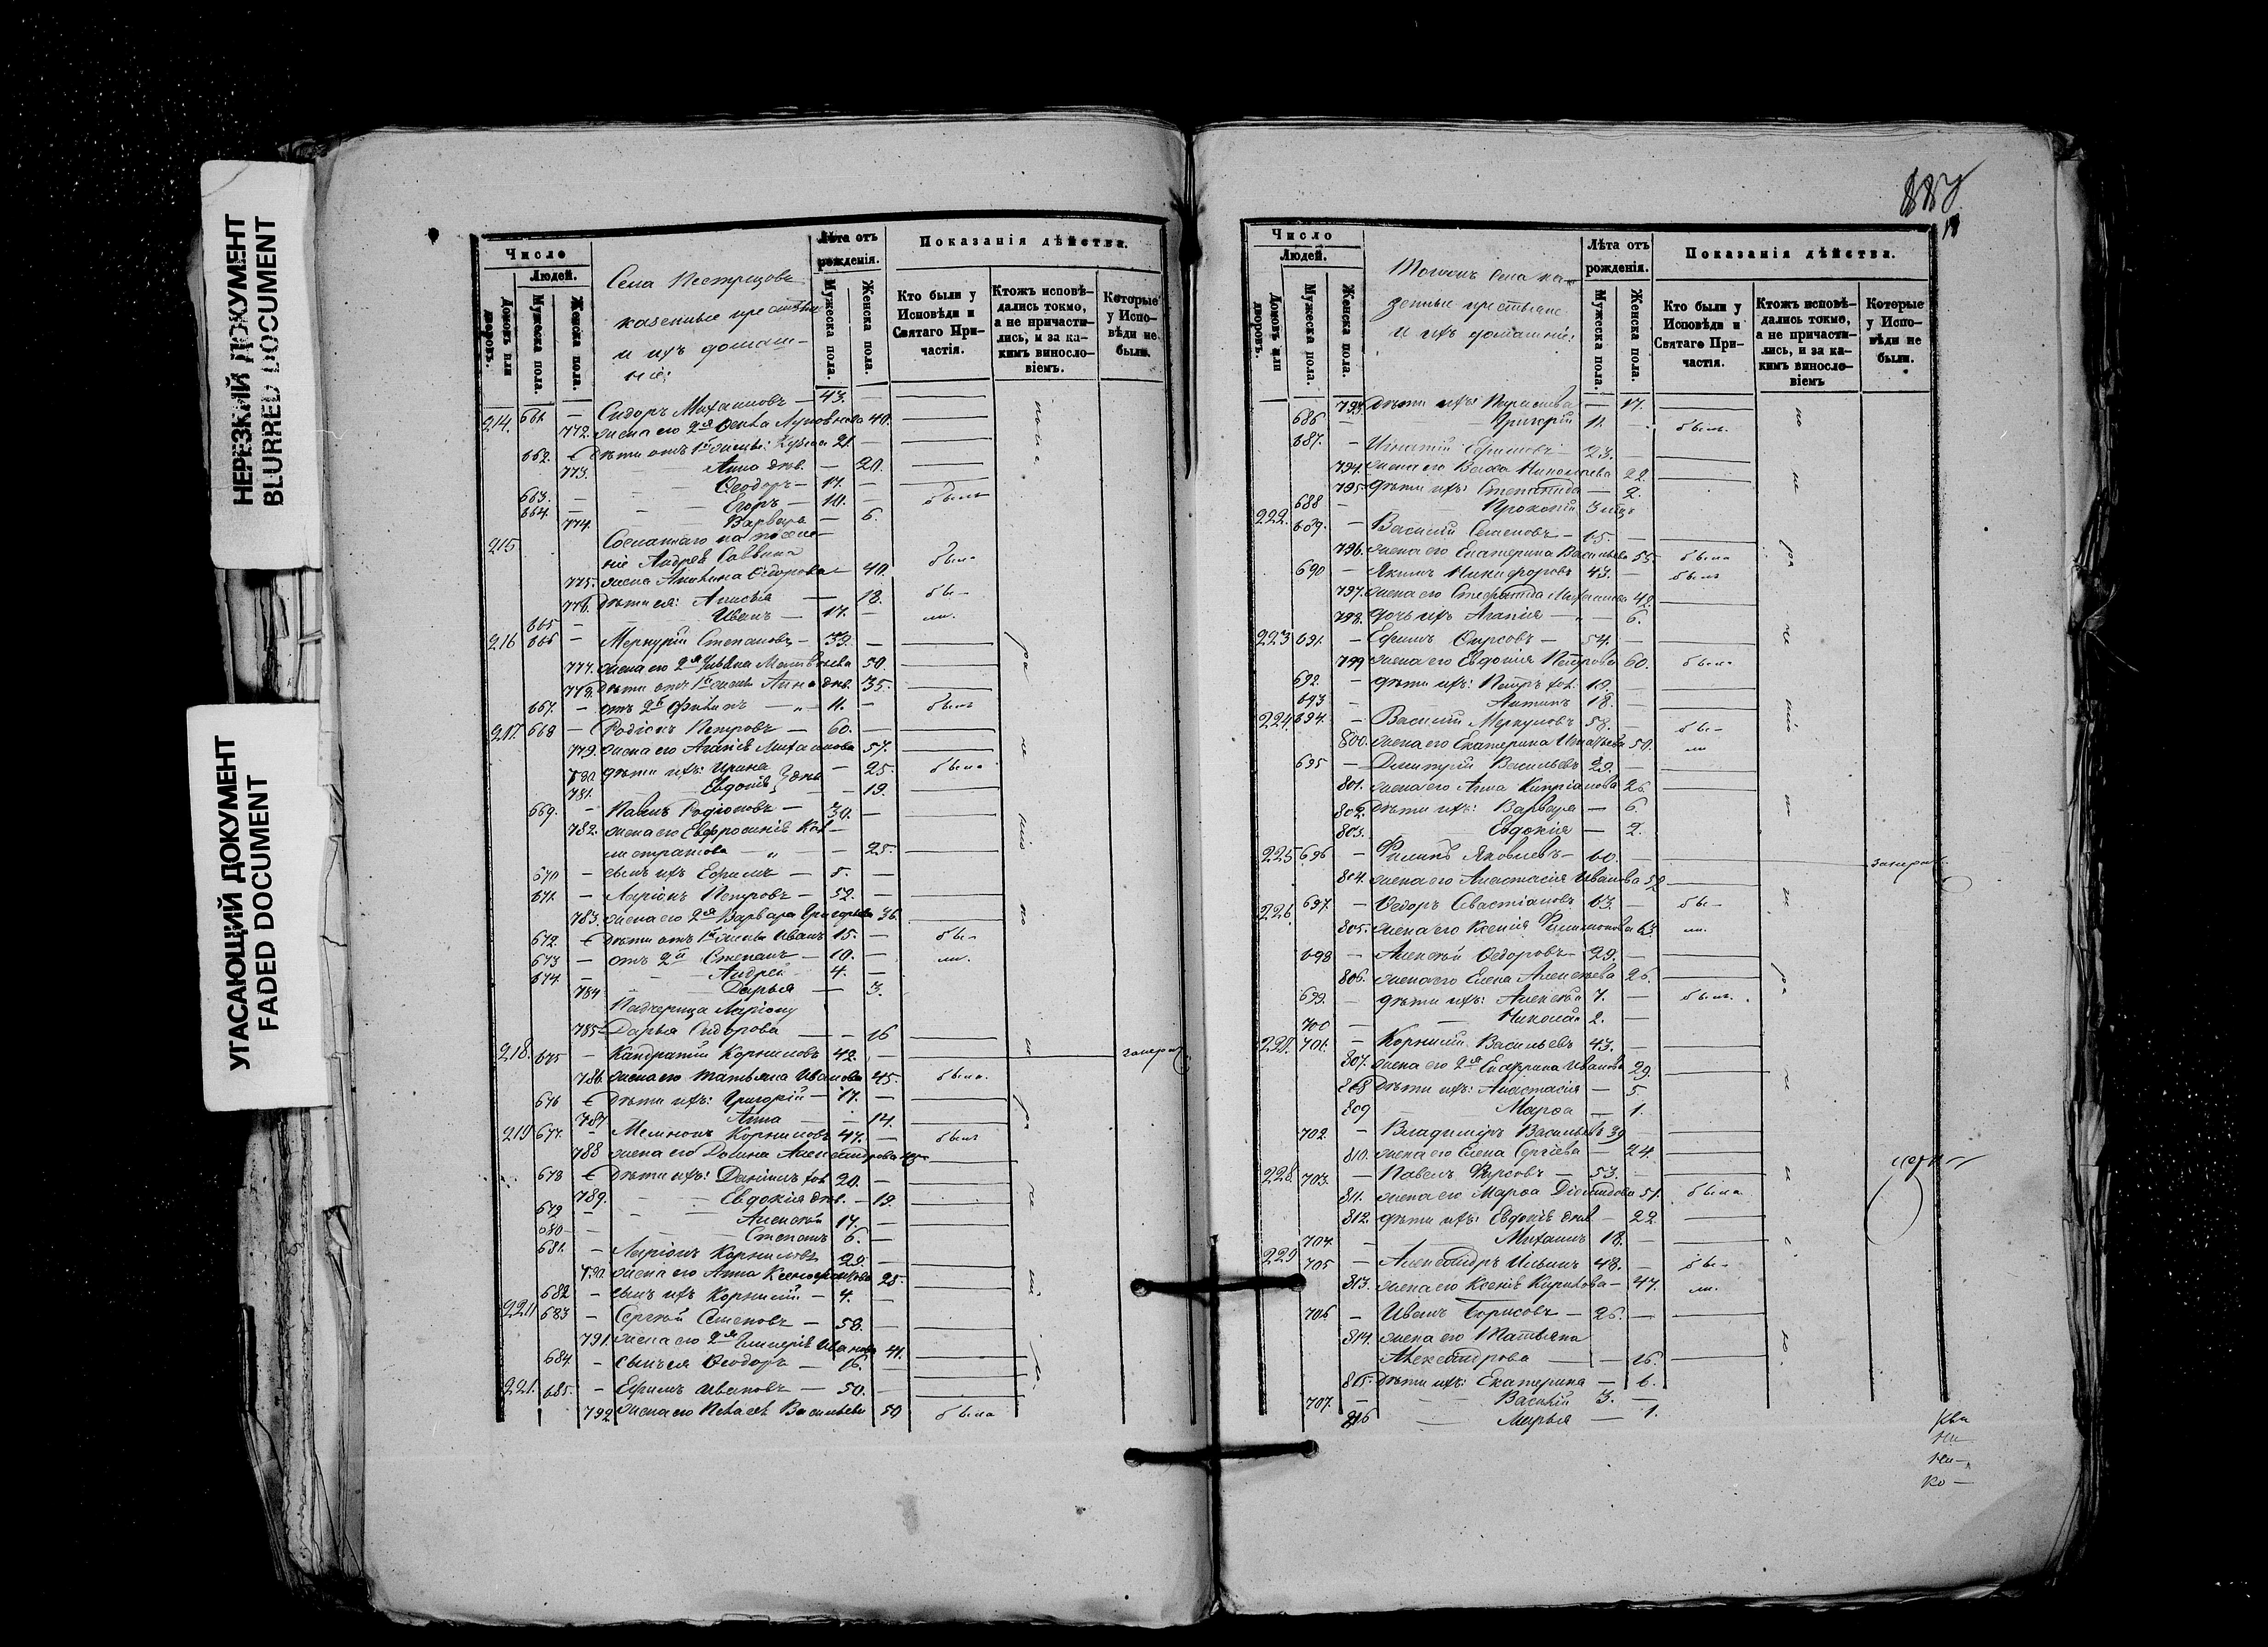 НЕРЕЗКИЙ ДОКУМЕНТ
BLURRED DOCUMENT
УГАСАЮЩИЙ ДОКУМЕНТ
FADED DOCUMENT
Число
Людей.
Домовъ или дворовъ.
Мужеска пола.
Женска пола.
Села Пестрецовъ
казенные крестьяне
и ихъ домаш-
ніе:
Лѣта отъ рожденія.
Мужеска пола.
Женска пола.
Показанія дѣйства.
Кто были у Исповѣди и Святаго При-частія.
Ктожъ исповѣ-дались токмо, а не причасти-лись, и за ка-кимъ винosло-віемъ.
Которые у Испо-вѣди не были.
214. 661. — Сидоръ Михаиловъ — 43.
772. жена его 2я 40.
662. дѣти отъ 1й жены: Кузма 21. —
773. Анна дѣв. — 20.
Ѳеодоръ — 17. —
663. — Егоръ — 14. — былъ
664. 774. Варвара — 6.
215 Сосланнаго на поселе-
ніе Андрея Саввина
775. жена Акилина Ѳедорова — 40. была
776. дѣти ея: Анисья — 18. бы-
665 — Иванъ — 17. — ли.
216 666 — Меркурій Степановъ — 39. —
777. жена его 2я Ульяна Матвѣева 50.
778. дѣти отъ 1й жены Анна дѣв. 35.
667. — отъ 2й Филипъ — 11. — былъ
217. 668 — Родіонъ Петровъ — 60. —
779. жена его Агапія Михаилова 57.
780. дѣти ихъ: Ирина — 25. была
781. Евдокія дѣв. — 19.
669. — Павелъ Родіоновъ — 30. —
782. жена его Евфросинія Кал-
листратова — „ — 25.
670 — сынъ ихъ Ефимъ — 5. —
671. — Ларіонъ Петровъ — 52. —
783. жена его 2я Варвара Григорьева 36.
672. дѣти отъ 1й жены Иванъ 15. — бы-
673 — отъ 2й Степанъ — 10. — ли.
674. — Андрей 4. —
784 Дарья — 3.
Падчерица Ларіону
785. Дарья Сидорова — 16
218. 675 — Кандратій Корниловъ 42. —
786. жена его Татьяна Иванова 45. была.
676 дѣти ихъ: Григорій — 17. —
787 Анна — 14.
219 677. Меліонъ Корниловъ 47. — былъ
788 жена его Домна Александрова
678 дѣти ихъ: Даніилъ 20. —
789. Евдокія дѣв. — 19.
679 — Алексѣй 17. —
680 — Степанъ 6. —
681. — Ларіонъ Корниловъ 29. —
790. жена его Анна Ксенофонтова 25.
682 — сынъ ихъ Корнилій — 4. —
220 683 — Сергѣй Семеновъ — 58. —
791. жена его 2я Гликерія Иванова 41.
684. — сынъ ея Ѳеодоръ — 16. —
221. 685. — Ефимъ Ивановъ — 50. —
792 жена его Пелагея Васильева 50 была
Число
Людей.
Домовъ или дворовъ.
Мужеска пола.
Женска пола.
Тогожъ села ка-
зенные крестьяне
и ихъ домашніе:
Лѣта отъ рожденія.
Мужеска пола.
Женска пола.
Показанія дѣйства.
Кто были у Исповѣди и Святаго При-частія.
Ктожъ исповѣ-дались токмо, а не причасти-лись, и за ка-кимъ винosло-віемъ
Которые у Испо-вѣди не были.
793. дѣти ихъ: Параскева — 17.
686 — Григорій 11. — были.
687. — Игнатій Ефимовъ — 23. —
794. жена его Васса Николаева 22.
795. дѣти ихъ: Степанида — 2.
688 — Прокопій 3 мѣс.
222. 689. — Василій Семеновъ — 65. —
796. жена его Екатерина Васильева 55. была
690 — Якимъ Никифоровъ 43. — былъ
797. жена его Степанида Михаилова 42.
798. дочь ихъ Агапія — „ — 6.
223 691. — Ефимъ Ѳирсовъ — 54. —
799 жена его Евдокія Петрова 60. была
692. — дѣти ихъ: Петръ 19. —
693 — Антипъ 18. —
224 694. — Василій Меркуловъ 58. — бы-
800. жена его Екатерина Игнатьева 50. ли
695 — Дмитрій Васильевъ 29. —
801. жена его Анна Кипріанова 26
802. дѣти ихъ: Варвара — 6.
803. Евдокія — 2.
225 696 — Филипъ Яковлевъ — 60. —
804. жена его Анастасія Иванова 52
226 697. — Ѳедоръ Севастіановъ 63. — бы-
805. жена его Ксенія Филимонова 63. ли.
698 — Алексѣй Ѳедоровъ — 29. —
806. жена его Елена Алексѣева 26.
699. — дѣти ихъ: Алексѣй 7. — былъ.
700 — Николай 2. —
701. — Корнилій Васильевъ 43. —
807. жена его 2я Екатерина Иванова 29.
808 дѣти ихъ: Анастасія — 5.
809 Марѳа — 1.
702. — Владиміръ Васильевъ 39
810. жена его Елена Сергіева — 24.
228 703. — Павелъ Ѳирсовъ — 53. —
811. жена его Марѳа 51. была
812. дѣти ихъ: Евдокія дѣв. — 22
704. — Михаилъ 18. —
229 705 — Александръ Ильинъ 48. — бы-
813. жена его Ксенія Кирилова — 47. ли.
706 — Иванъ Борисовъ — 26. —
814. жена его Татьяна
Александрова — 26.
815. дѣти ихъ: Екатерина — 6.
707. — Василій 3. —
816 Марья — 1.